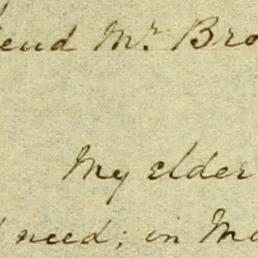 end Mr. Bro
My elder
need; in Ma